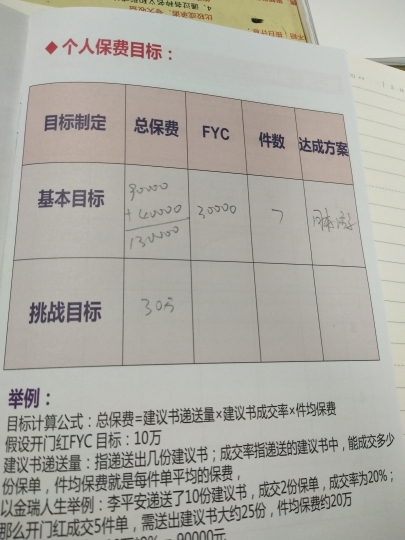 4、通过各种名义和形式
◆个人保费目标：
目标制定 总保费 FYC 件数 达成方案
基本目标 90000 30000 7
+40000
130000
挑战目标 30万
举例：
目标计算公式：总保费=建议书递送量×建议书成交率×件均保费
假设开门红FYC 目标：10万
建议书递送量：指递送出几份建议书；成交率指递送的建议书中，能成交多少
份保单，件均保费就是每件单平均的保费，
以金瑞人生举例：李平安递送了10份建议书，成交2份保单，成交率为20%；
那么开门红成交5件单，需送出建议书大约25份，件均保费约20万
= 90000元